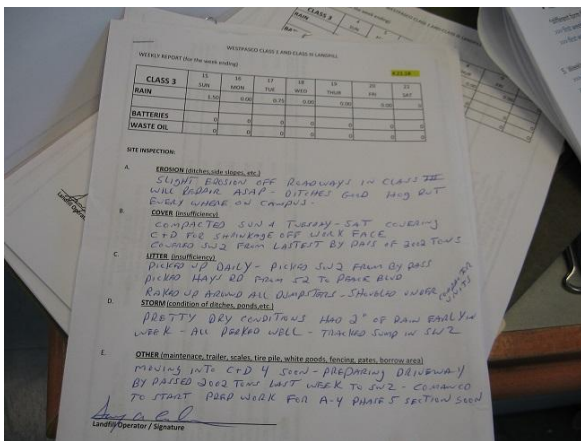 CLASS 3
RAIN
WESTPASCO CLASS 1 AND CLASS III LANDFILL
WEEKLY REPORT (for the week ending)
CLASS 3 15 16 17 18 19 20 21
SUN MON TUE WED THUR FRI SAT
RAIN 1.50 0.00 0.75 0.00 0.00 0.00 0
BATTERIES 0 0 0 0 0 0 0
WASTE OIL 0 0 0 0 0 0 0
SITE INSPECTION:
A. EROSION (ditches, side slopes, etc.)
SLIGHT EROSION OFF ROADWAYS IN CLASS III
WILL REPAIR ASAP - DITCHES GOOD
EVERY WHERE ON CAMPUS.
B. COVER (insufficiency)
COMPACTED SUN & TUESDAY - SAT COVERING
C+D FOR SHRINKAGE OFF WORK FACE
COVERED SW2 FROM LASTEST BY PASS OF 2002 TONS
C. LITTER (insufficiency)
PICKED UP DAILY - PICKED SW2 FROM BY PASS
PICKED HAYS RD FROM 52 TO PEACE BLVD
RAKED UP AROUND ALL DUMPSTERS - SHOVELED UNDER COMPACTOR UNITS
D. STORM (condition of ditches, ponds, etc.)
PRETTY DRY CONDITIONS HAD 2" OF RAIN EARLY IN
WEEK - ALL PERKED WELL - TRACKED SUMP IN SW2
E. OTHER (maintenace, trailer, scales, tire pile, white goods, fencing, gates, borrow area)
MOVING INTO C+D 4 SOON - PREPARING DRIVEWAY
BY PASSED 2002 TONS LAST WEEK TO SW2 - COMANCO
TO START PREP WORK FOR A-4 PHASE 5 SECTION SOON
Landfill Operator / Signature